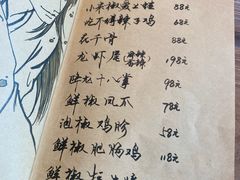 小米椒爱上蛙 88元
吃不得辣子鸡 68元
花干骨 88元
龙虾尾(麻辣 香辣) 198元
卧龙十八掌 98元
鲜椒凤爪 78元
泡椒鸡胗 58元
鲜椒肥肠鸡 118元
鲜椒